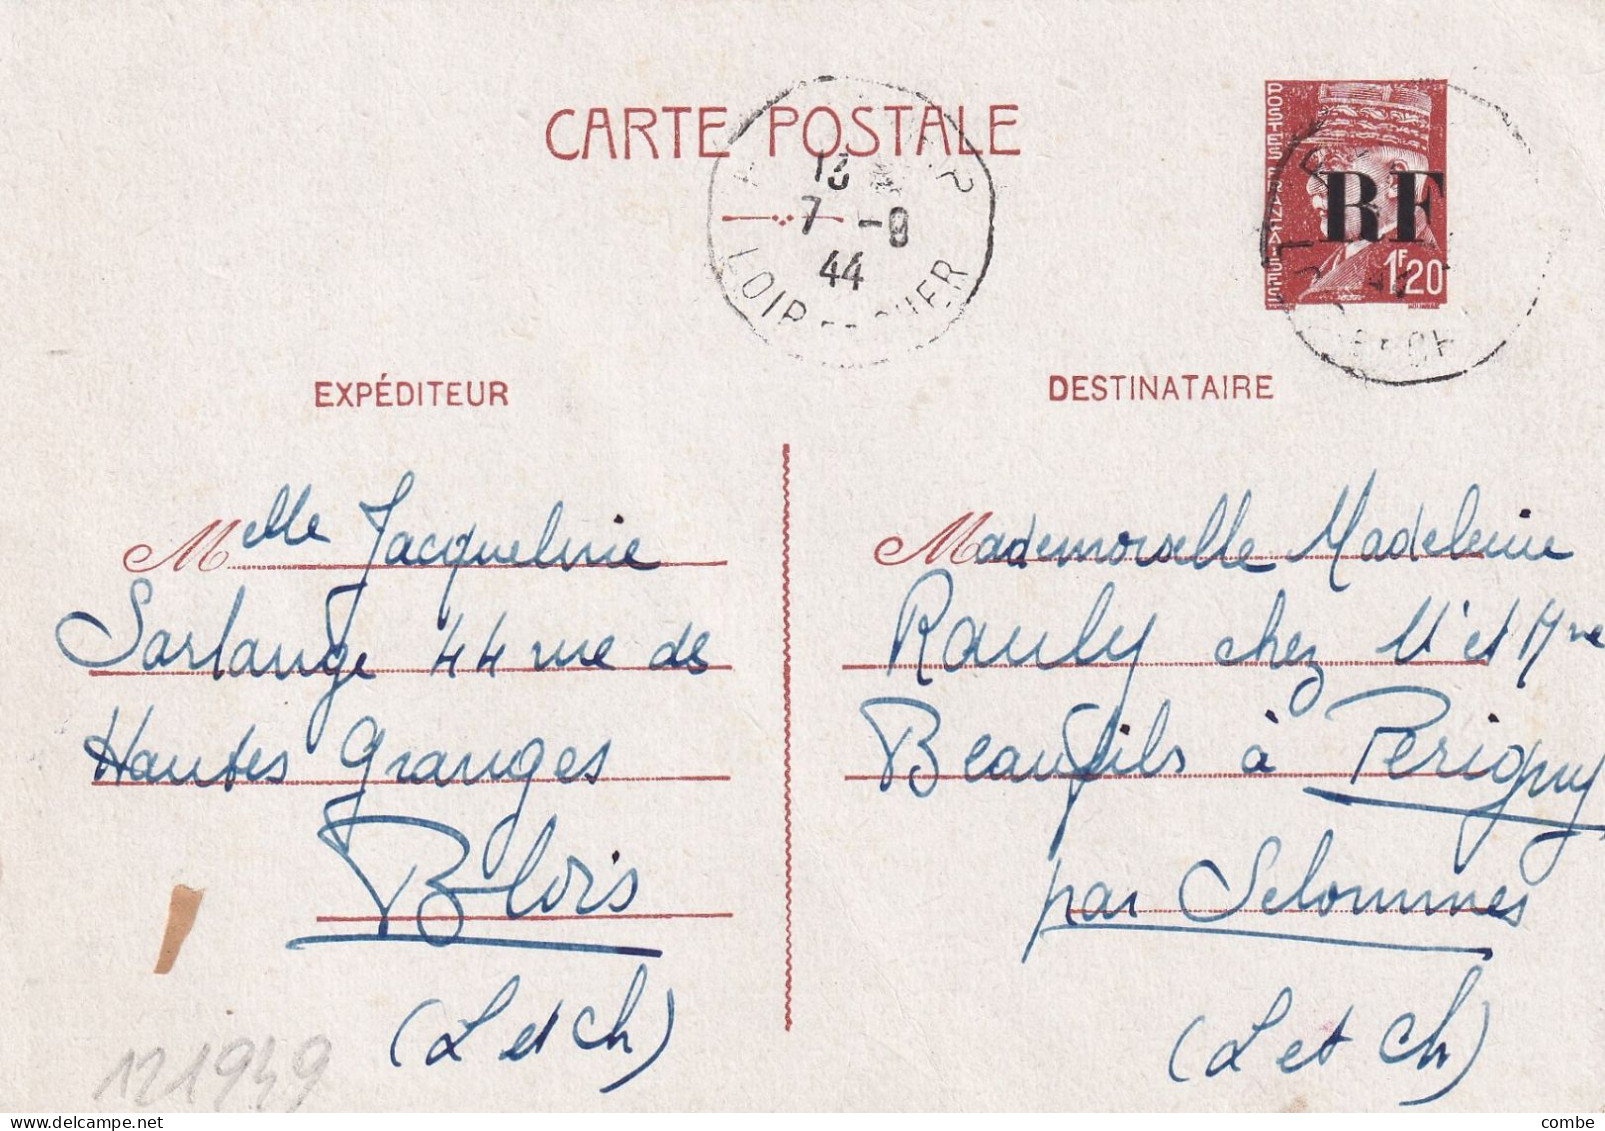 CARTE POSTALE
POSTES FRANÇAISES
RF
1F20
13
7 -9
44
LOIR-ET-CHER
EXPÉDITEUR
DESTINATAIRE
Melle Jacqueline
Sarlange 44 rue des
Hautes Granges
Blois
(L et Ch)
Mademoiselle Madeleine
Rauly chez Mr et Mme
Beaufils à Périgny
par Selommes
(L et Ch)
121949
combe